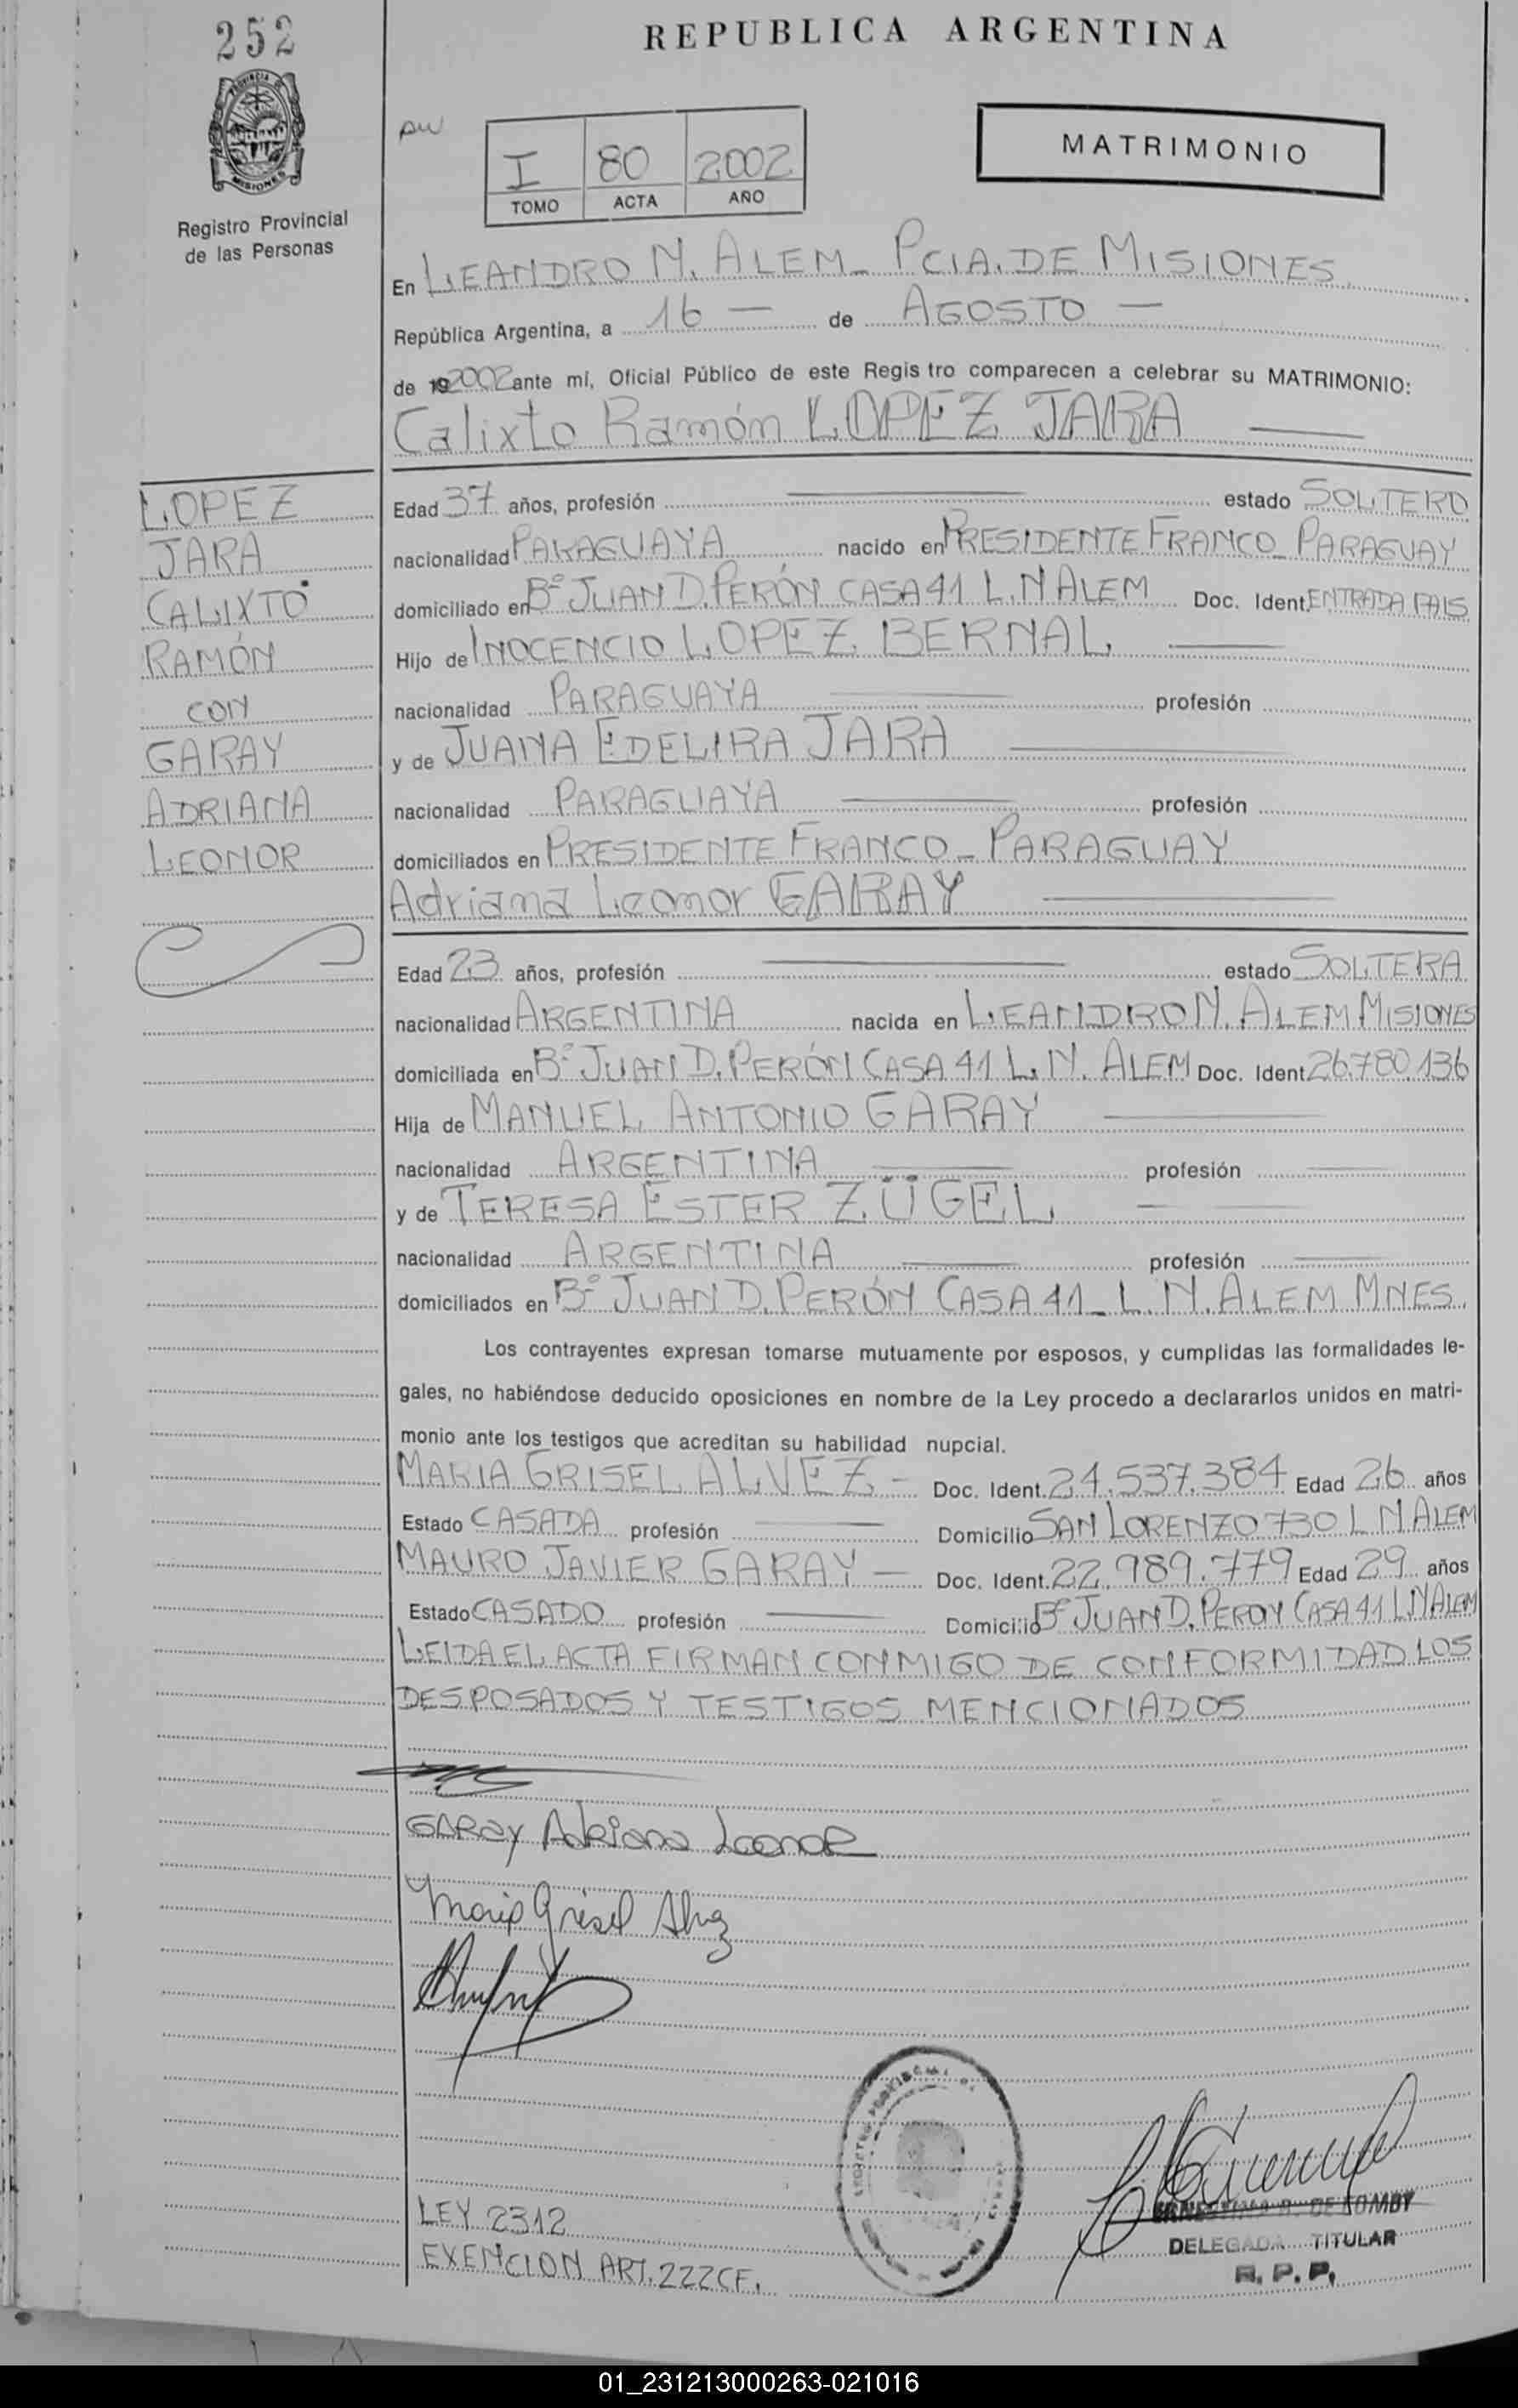 252
REPUBLICA ARGENTINA
PROVINCIA DE
MISIONES
Registro Provincial
de las Personas
I 80 2002
TOMO ACTA AÑO
MATRIMONIO
En LEANDRO N. ALEM - PCIA. DE MISIONES
República Argentina, a 16 — de AGOSTO —
de 192002 ante mí, Oficial Público de este Regis tro comparecen a celebrar su MATRIMONIO:
Calixto Ramón LOPEZ JARA
LOPEZ
JARA
CALIXTO
RAMÓN
CON
GARAY
ADRIANA
LEONOR
Edad 37 años, profesión — estado SOLTERO
nacionalidad PARAGUAYA nacido en PRESIDENTE FRANCO - PARAGUAY
domiciliado en Bº JUAN D. PERÓN CASA 41 L. N ALEM Doc. Ident. ENTRADA PAIS
Hijo de INOCENCIO LOPEZ BERNAL —
nacionalidad PARAGUAYA — profesión
y de JUANA EDELIRA JARA —
nacionalidad PARAGUAYA — profesión
domiciliados en PRESIDENTE FRANCO - PARAGUAY
Adriana Leonor GARAY —
Edad 23 años, profesión — estado SOLTERA
nacionalidad ARGENTINA nacida en LEANDRO N. ALEM MISIONES
domiciliada en Bº JUAN D. PERÓN CASA 41 L. N. ALEM Doc. Ident. 26.780.136
Hija de MANUEL ANTONIO GARAY —
nacionalidad ARGENTINA — profesión —
y de TERESA ESTER ZÜGEL —
nacionalidad ARGENTINA — profesión —
domiciliados en Bº JUAN D. PERÓN CASA 41 - L. N. ALEM MNES.
Los contrayentes expresan tomarse mutuamente por esposos, y cumplidas las formalidades le-
gales, no habiéndose deducido oposiciones en nombre de la Ley procedo a declararlos unidos en matri-
monio ante los testigos que acreditan su habilidad nupcial.
MARIA GRISEL ALVEZ - Doc. Ident. 24.537.384 Edad 26 años
Estado CASADA profesión — Domicilio SAN LORENZO 730 L N ALEM
MAURO JAVIER GARAY — Doc. Ident. 22.989.779 Edad 29 años
Estado CASADO profesión — Domicilio Bº JUAN D. PERON CASA 41 L N ALEM
LEIDA EL ACTA FIRMAN CONMIGO DE CONFORMIDAD LOS
DESPOSADOS Y TESTIGOS MENCIONADOS
GARAY Adriana Leonor
Maria Grisel Alvez
LEY 2312
EXENCION ART. 222 CF.
DELEGADA TITULAR
R. P. P.
01_231213000263-021016